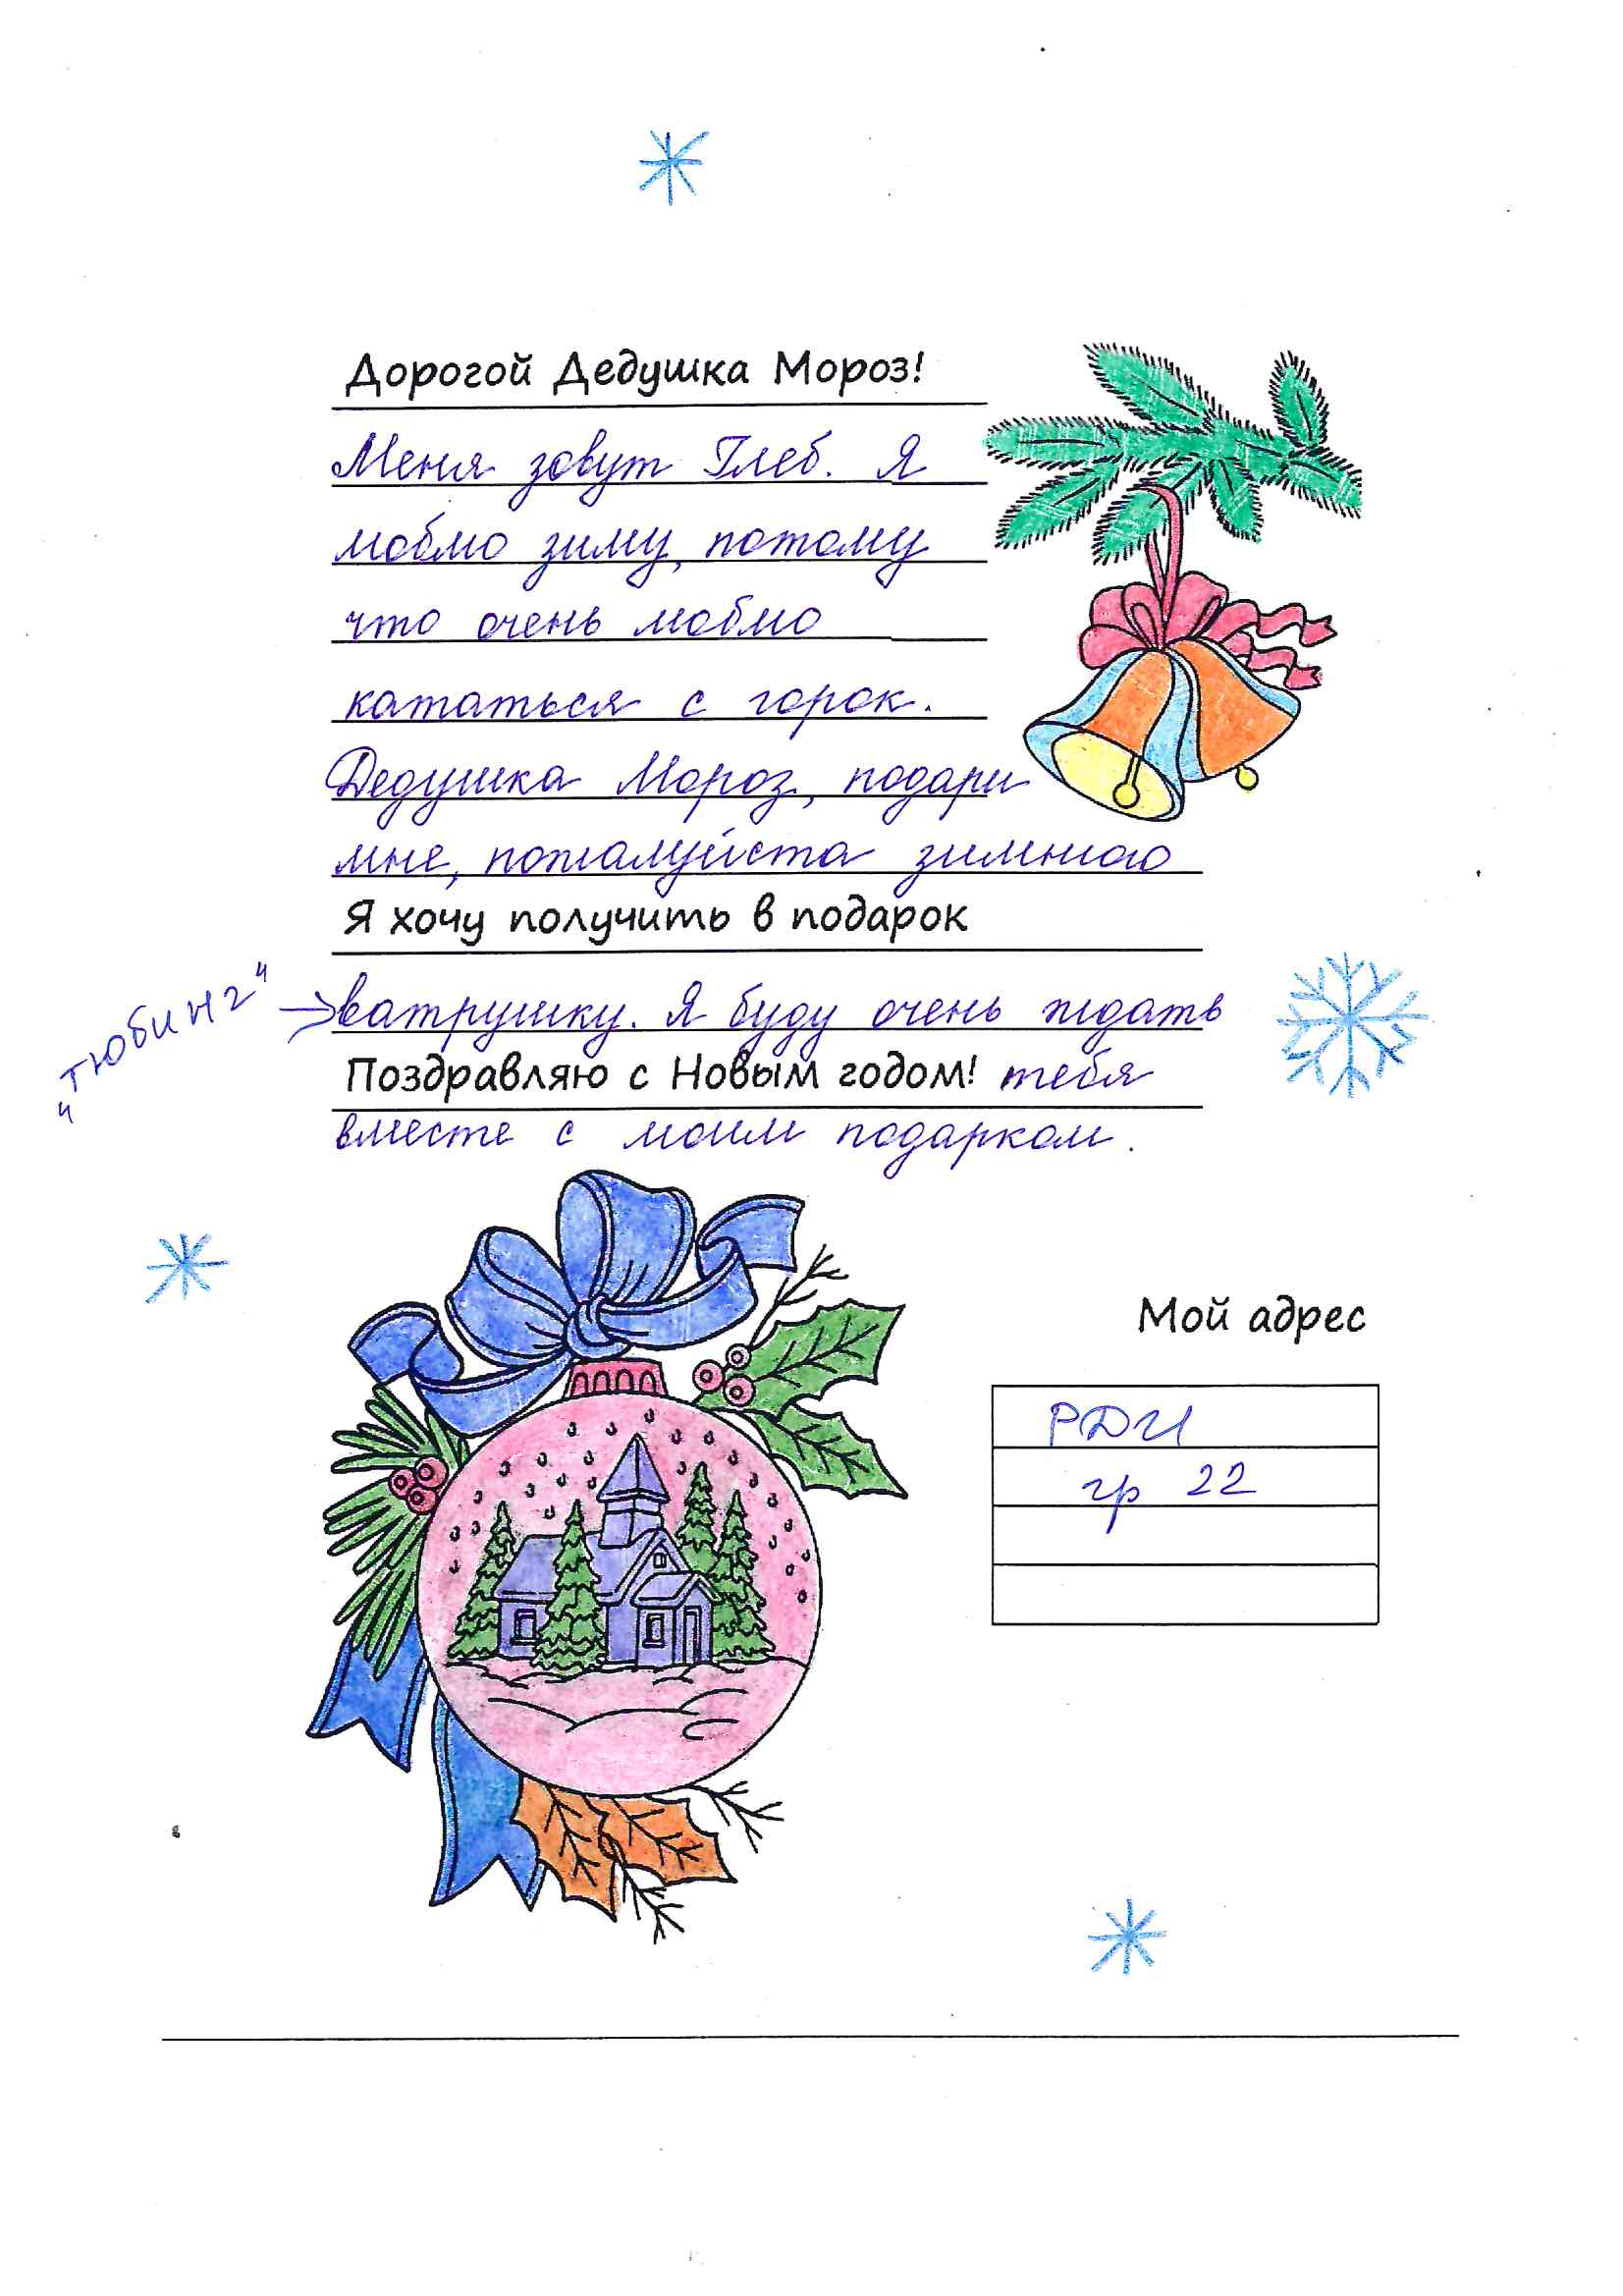 Дорогой Дедушка Мороз!
Меня зовут Глеб. Я
люблю зиму, потому
что очень люблю
кататься с горок.
Дедушка Мороз, подари
мне, пожалуйста зимнюю
Я хочу получить в подарок
"тюбинг" → ватрушку. Я буду очень ждать
Поздравляю с Новым годом! тебя
вместе с моим подарком.
Мой адрес
РДИ
гр 22